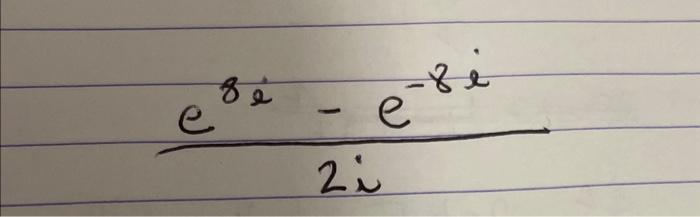 e^{8i} - e^{-8i}
2i